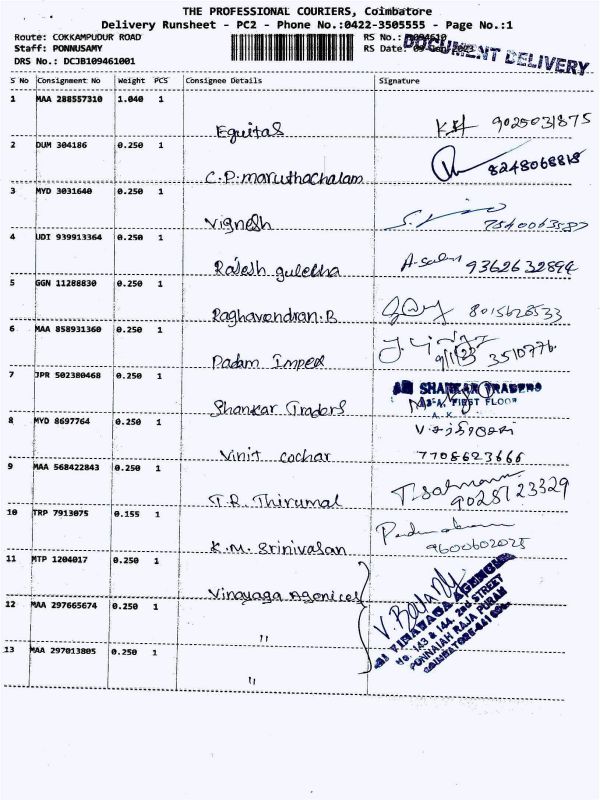 THE PROFESSIONAL COURIERS, Coimbatore
Delivery Runsheet - PC2 - Phone No.:0422-3505555 - Page No.:1
Route: COKKAMPUDUR ROAD
RS No.:
Staff: PONNUSAMY
RS Date:
DRS No.: DCJB109461001
DOCUMENT DELIVERY
S No Consignment No Weight PCS Consignee Details Signature
1 MAA 288557310 1.040 1 Equitas 9025031875
2 DUM 304186 0.250 1 C.P.maruthachalam 8248068818
3 MYD 3031640 0.250 1 Vignesh 7540063587
4 UDI 939913364 0.250 1 Rajesh gulekha 9362632894
5 GGN 11288830 0.250 1 Raghavendran.B 8015628533
6 MAA 858931360 0.250 1 Padam Impex 9/1/23 3510776
7 JPR 502380468 0.250 1 Shankar Traders SHANKAR TRADERS
FIRST FLOOR
8 MYD 8697764 0.250 1 Vinit cochar 7708623666
9 MAA 568422843 0.250 1 T.R. Thirumal 9028123329
10 TRP 7913075 0.155 1 K.M. Srinivasan 9600602025
11 MTP 1204017 0.250 1 Vinayaga Agenices
12 MAA 297665674 0.250 1 "
13 MAA 297013805 0.250 1 "
VINAYAGA AGENCIES
No. 143 & 144, 2nd STREET
PONNAIAH RAJA PURAM